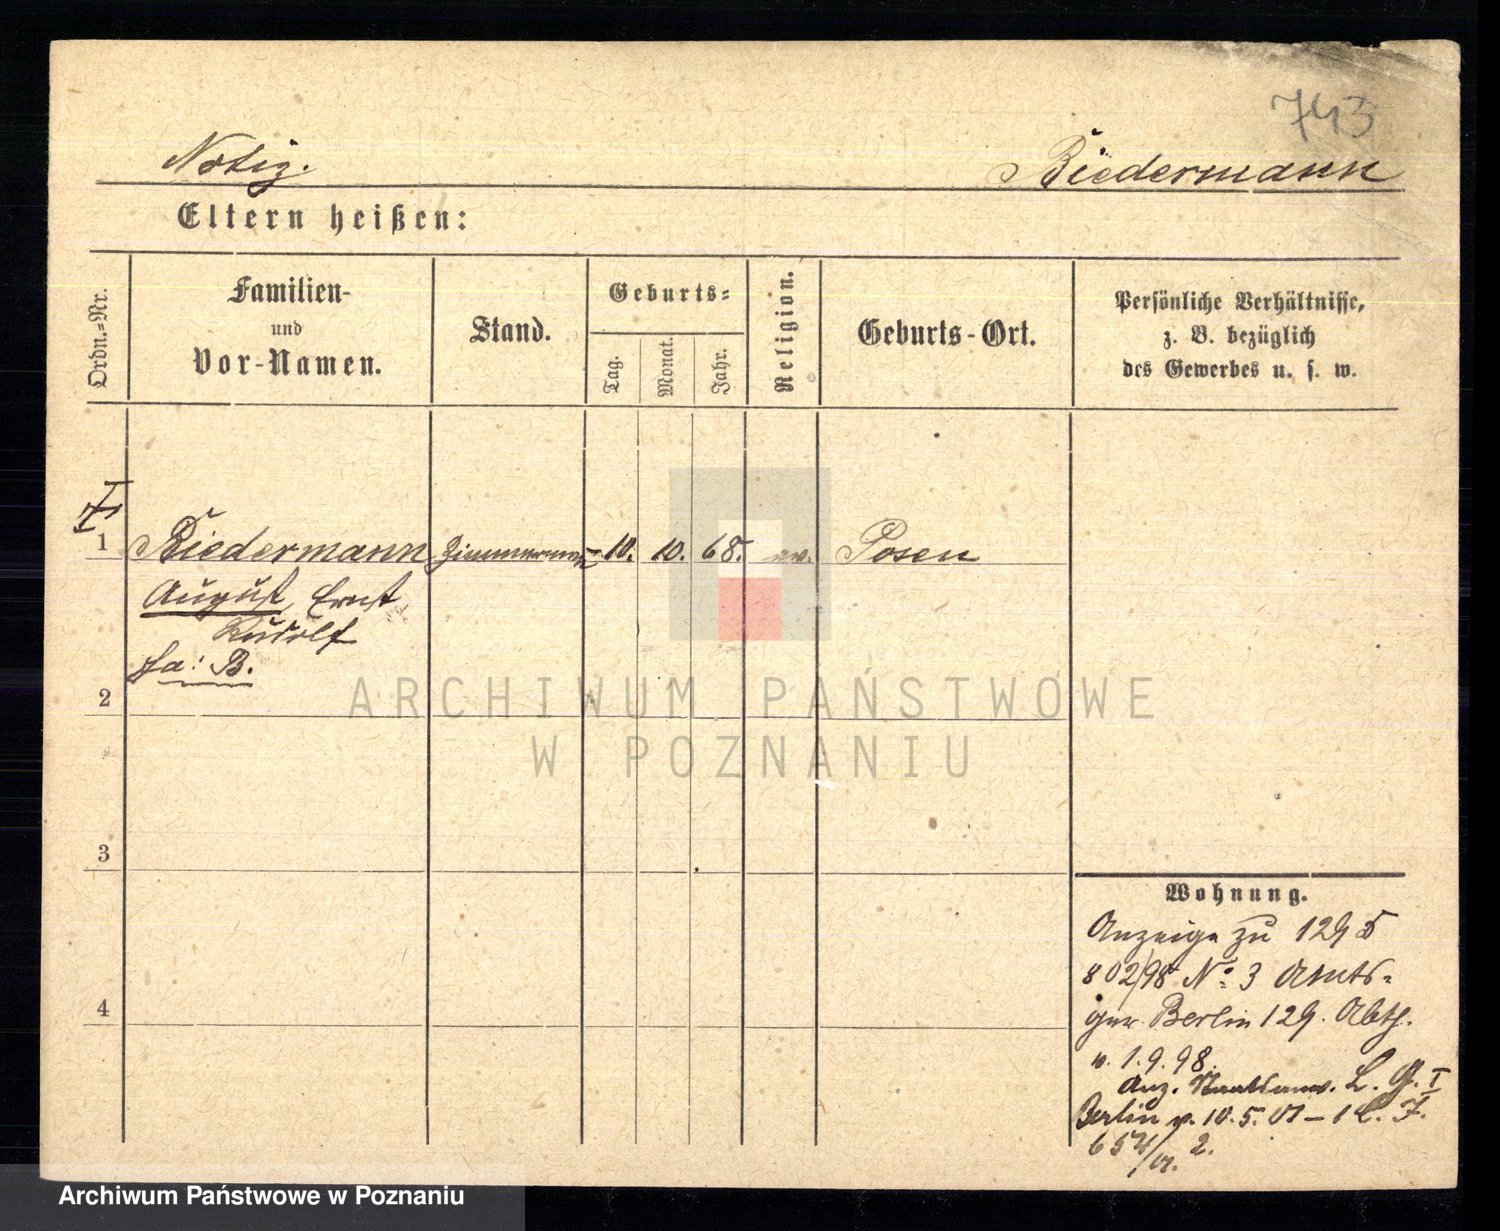 743
Notiz. Biedermann
Eltern heißen:
Ordn.-Nr.
Familien-
und
Vor-Namen.
Stand.
Geburts-
Tag.
Monat.
Jahr.
Religion.
Geburts-Ort.
Persönliche Verhältnisse,
z. B. bezüglich
des Gewerbes u. s. w.
1 Biedermann Zimmermann 10. 10. 68. ev. Posen
August, Ernst
Rudolf
fa: B.
2
3
4
Wohnung.
Anzeige zu 129 D
802/98 No 3 Amts-
ger. Berlin 129. Abth.
v. 1.9.98.
Anz. Staatsanw. L. G. I
Berlin v. 10.5.01 - 1 L. J.
654/01. 2.
ARCHIWUM PAŃSTWOWE
W POZNANIU
Archiwum Państwowe w Poznaniu